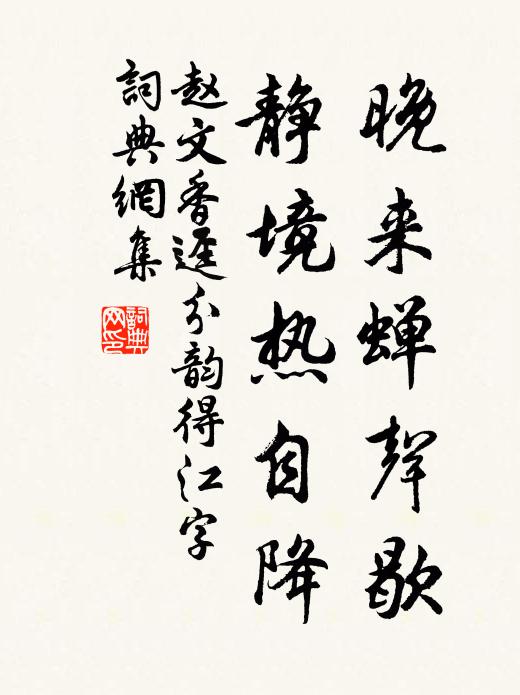 晚来蝉聲歇
静境热自降
赵文香遲分韵得江字
詞典網集
詞典网印